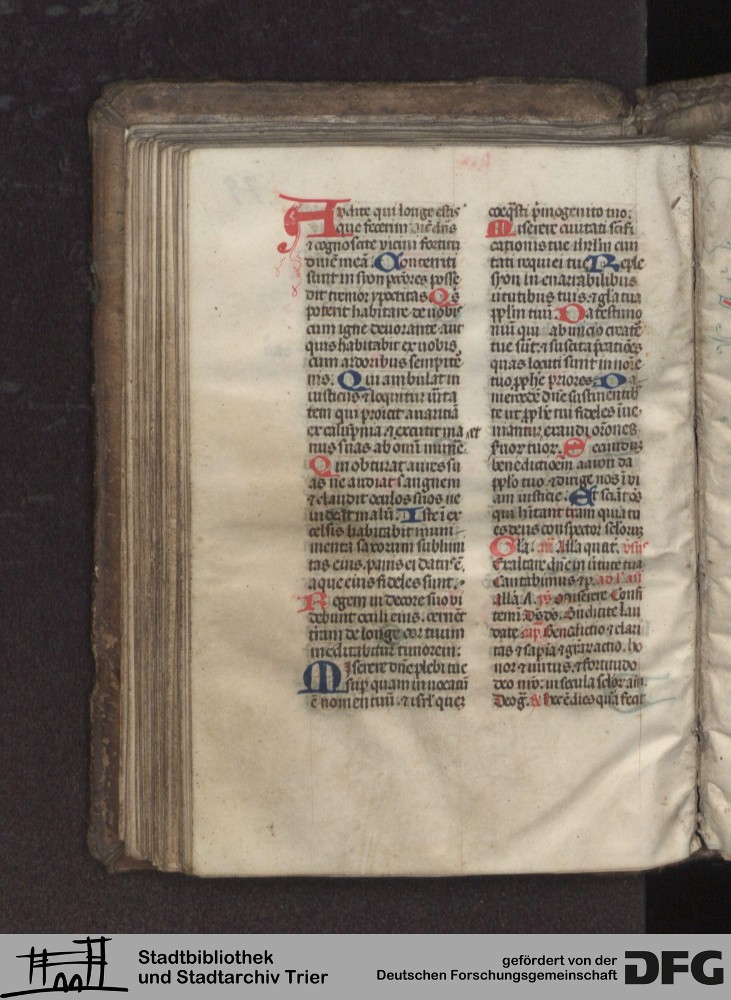 Audite qui longe estis
que fecerim
⁊ cognoscite vicini fortitu
dinē meā. Conterriti
sunt in syon
dit tremor ypocritas Qͥs
poterit habitare de vobis
cum igne devorante aut
quis habitabit ex vobis
cum ardoribus sempiter
nis. Qui ambulat in
iusticiis ⁊ loquitur
tem qui proicit avaritiā
ex calūpnia ⁊ excutit ma
nus suas ab omī
Qui obturat aures su
as ne audiat sanguinem
⁊ claudit oculos suos ne
videat malū. Iste ī ex
celsis habitabit muni
menta saxorum sublimi
tas eius. panis ei datꝰ ē.
aque eius fideles sunt.
Regem in decore suo vi
debunt oculi eius. cernēt
terram de longe cor tuum
meditabitur timorem:
Miserere dn̄e plebi tue
suꝑ quam invocatū
ē nomen tuū. ⁊ isrl' quē
coeq̄sti primogenito tuo:
Miserere civitati scifi
cationis tue ihrlm civi
tati requiei tue Reple
syon inenarrabilibus
virtutibus tuis. ⁊ gl̄a tua
ppl̄m tuū. Da testimo
niū qui ab inicio creatē
tue sūt. ⁊ suscita p̄catiōes
quas locuti sunt in noīe
tuo ꝓph̄e priores. Da
mercedē dn̄e sustinentib'
te ut ꝓph̄e tui fideles inve
niantur exaudi orōnes
s̄vorum tuorum. Secundum
benedictionem aaron da
ppl̄o tuo ⁊ dirige nos ī vi
am iusticie. Et sciāt oēs
qui habitant terram quia tu
es deus conspector scl̄orum
Gl̄a. an̄. All̄a quat'. v̄sus
Exaltare dn̄e in virtute tua
Cantabimus ⁊ p̄. ad lau
all̄a. A. pˢ Miserere Confi
temi Ds̄ ds̄. Bn̄dicite Lau
date. cap. Benedictio ⁊ clari
tas ⁊ sapīa ⁊ gr̄arum actio. ho
nor ⁊ virtus. ⁊ fortitudo
deo nr̄o. in secula scl̄orum am̄.
Deo gr̄. R. hec ē dies quā fecit
Stadtbibliothek
und Stadtarchiv Trier
gefördert von der
Deutschen Forschungsgemeinschaft
DFG